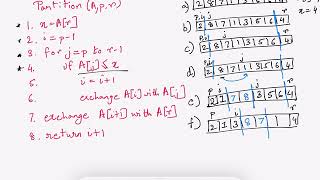 Partition (A,p,r)
1. x=A[r]
2. i=p-1
3. for j=p to r-1
4. if A[j]≤x
5. i=i+1
6. exchange A[i] with A[j]
7. exchange A[i+1] with A[r]
8. return i+1
a) 2 8 7 1 3 5 6 4
x=4
b) 2 8 7 1 3 5 6 4
c) 2 8 7 1 3 5 6 4
d) 2 8 7 1 3 5 6 4
e) 2 1 7 8 3 5 6 4
f) 2 1 3 8 7 4